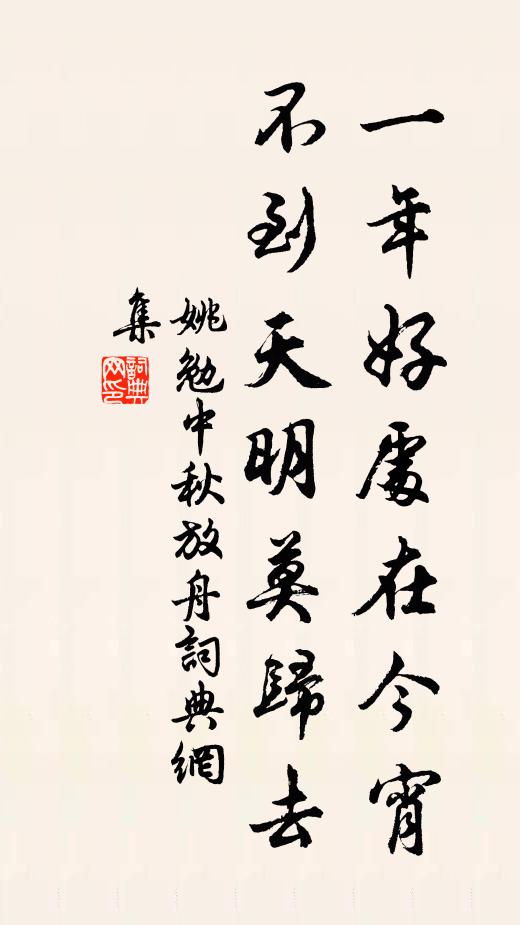 一年好處在今宵
不到天明莫歸去
姚勉中秋放舟詞典網
集
詞典
网印